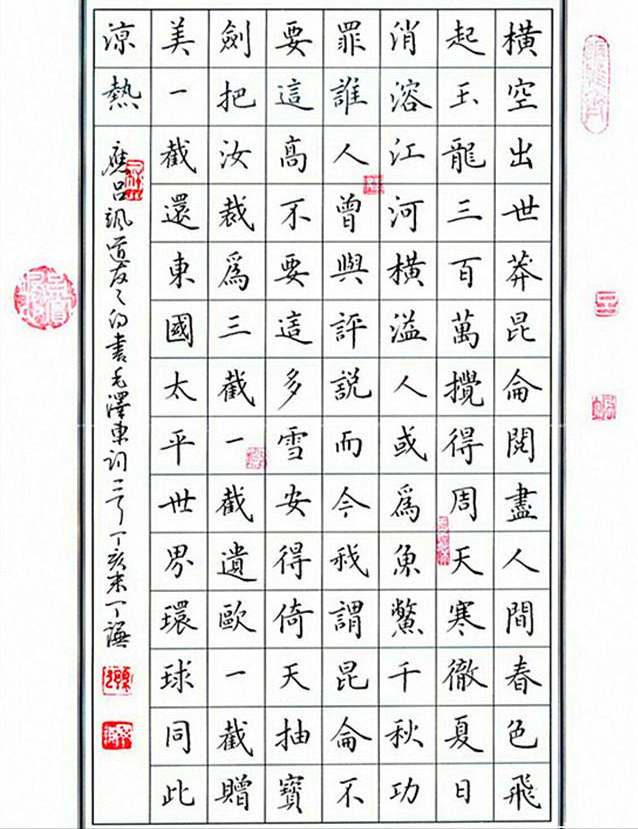 橫空出世莽昆侖閱盡人間春色飛
起玉龍三百萬攪得周天寒徹夏日
消溶江河橫溢人或爲魚鱉千秋功
罪誰人曾與評説而今我謂昆侖不
要這高不要這多雪安得倚天抽寶
劍把汝裁爲三截一截遺歐一截贈
美一截還東國太平世界環球同此
涼熱
應呂道友之書毛澤東詞丁亥末丁謙